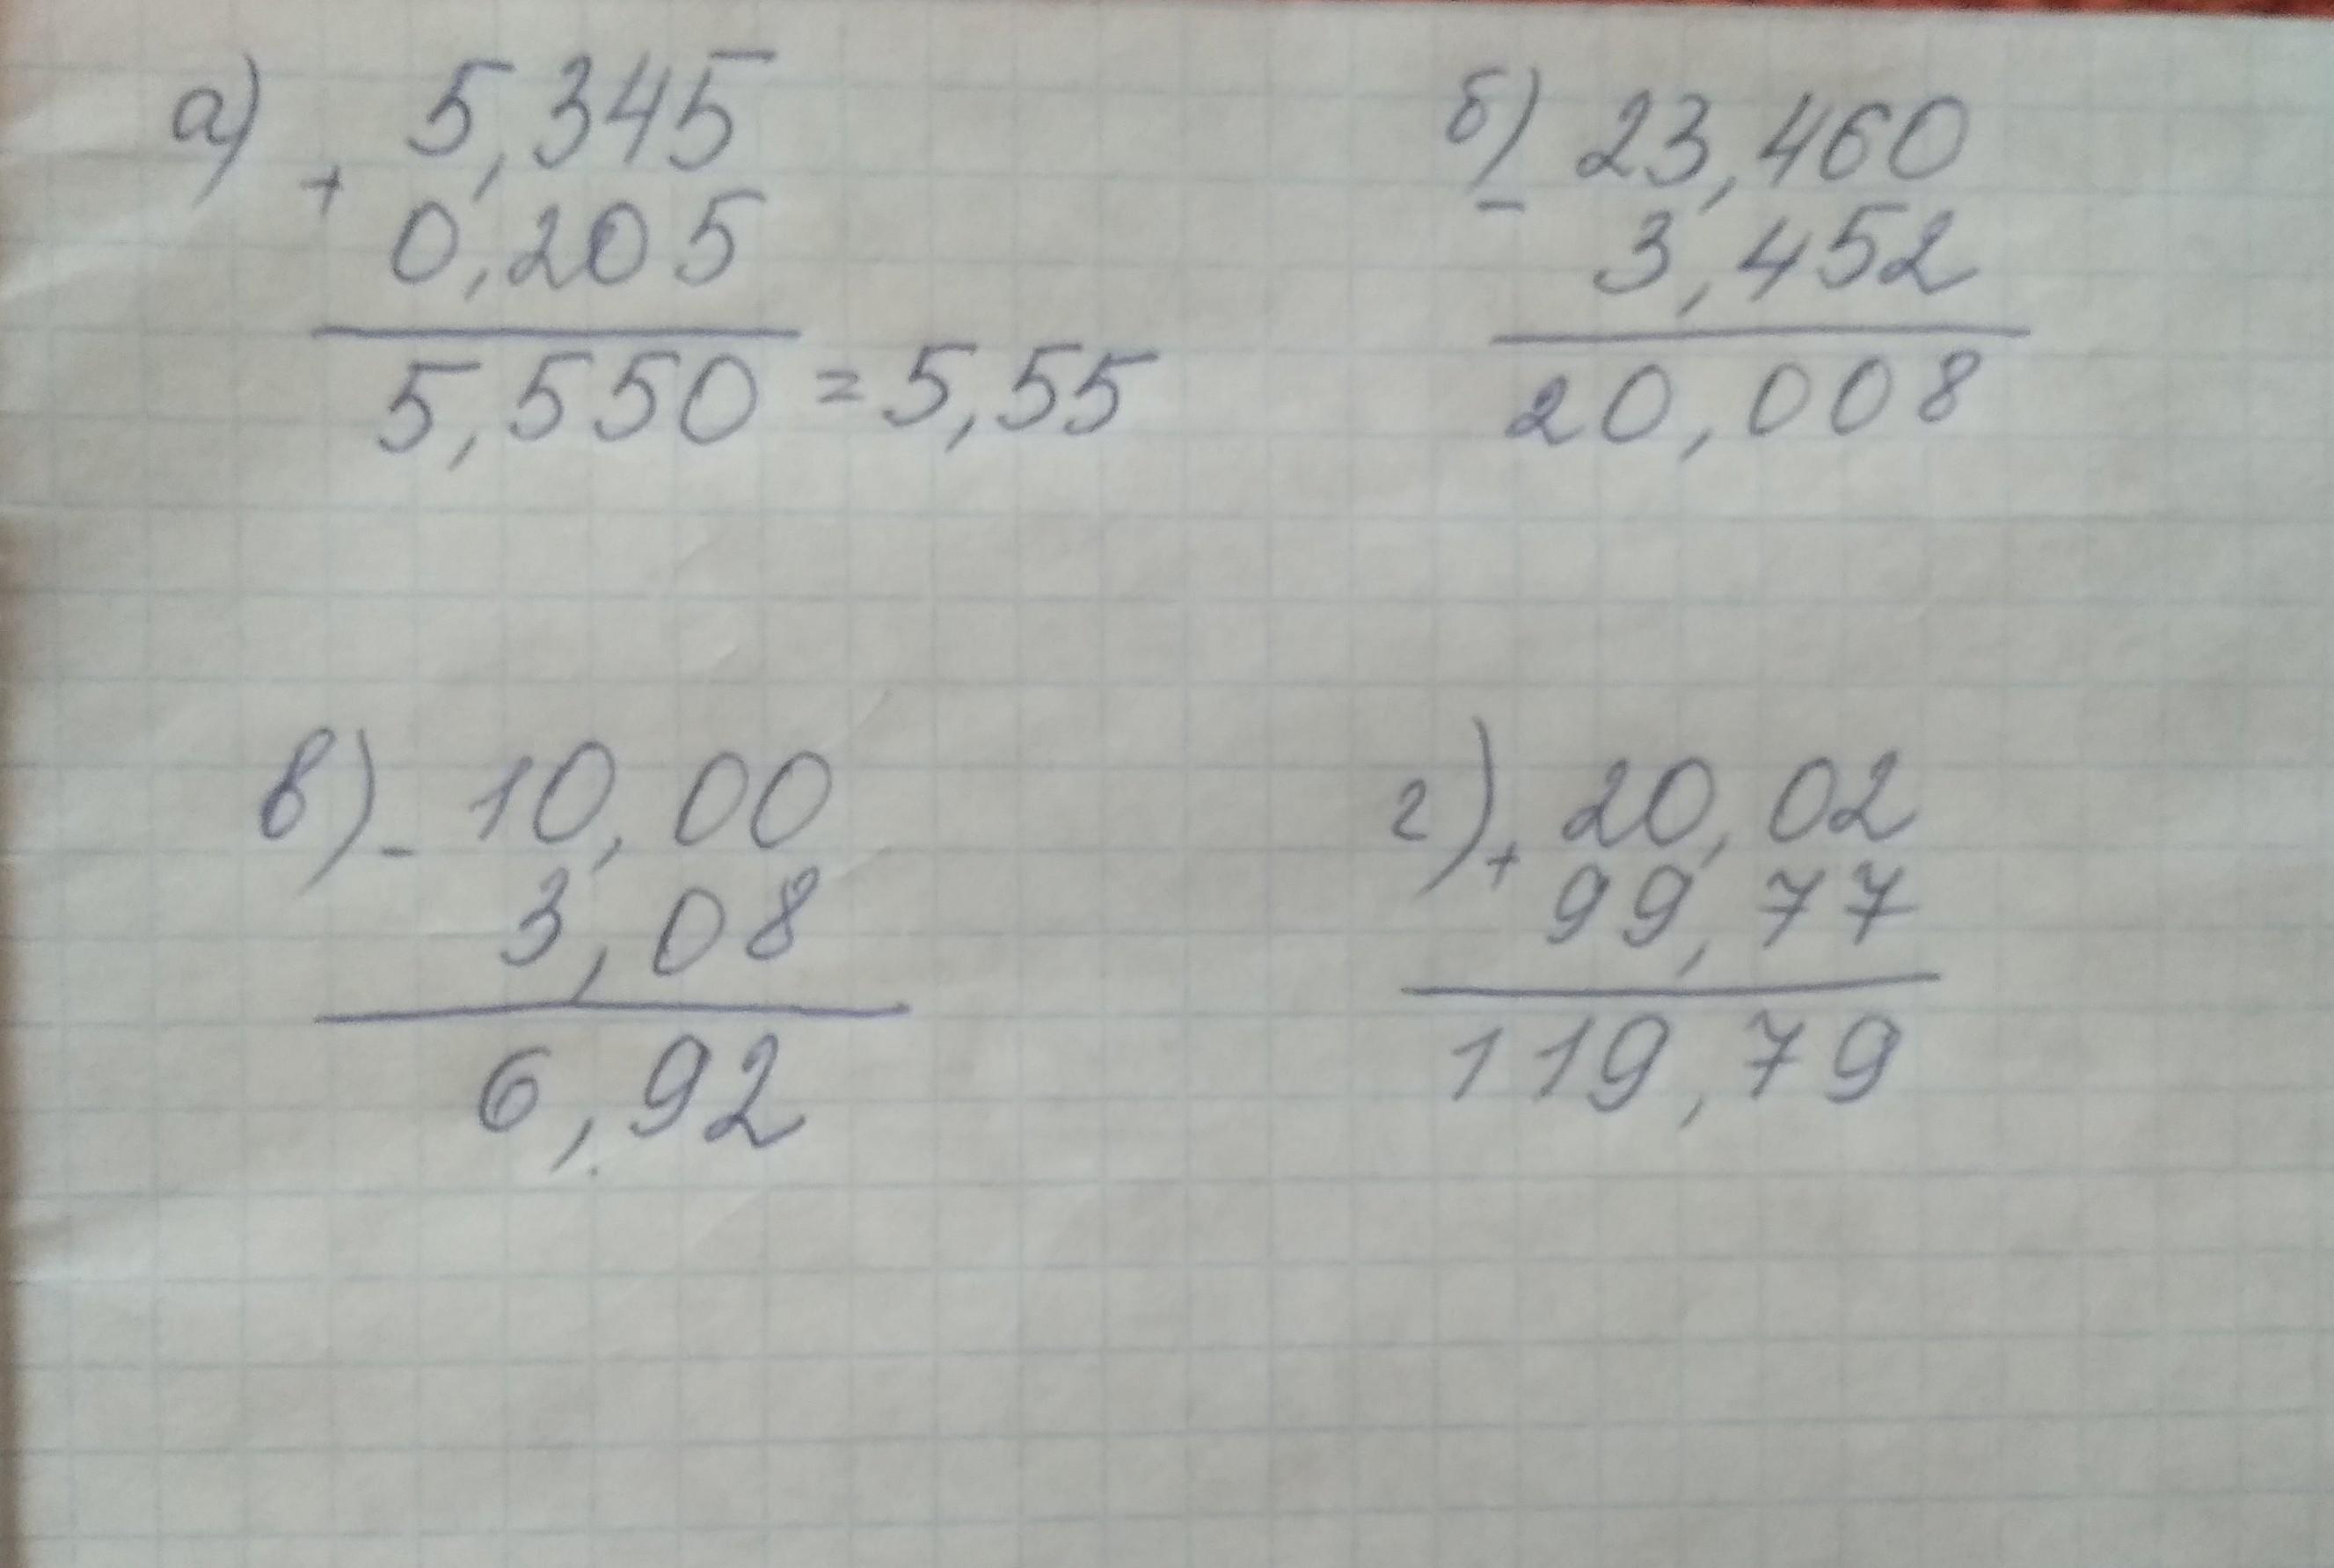 а) + 5,345
0,205
5,550 = 5,55
б) - 23,460
3,452
20,008
в) - 10,00
3,08
6,92
г) + 20,02
99,77
119,79